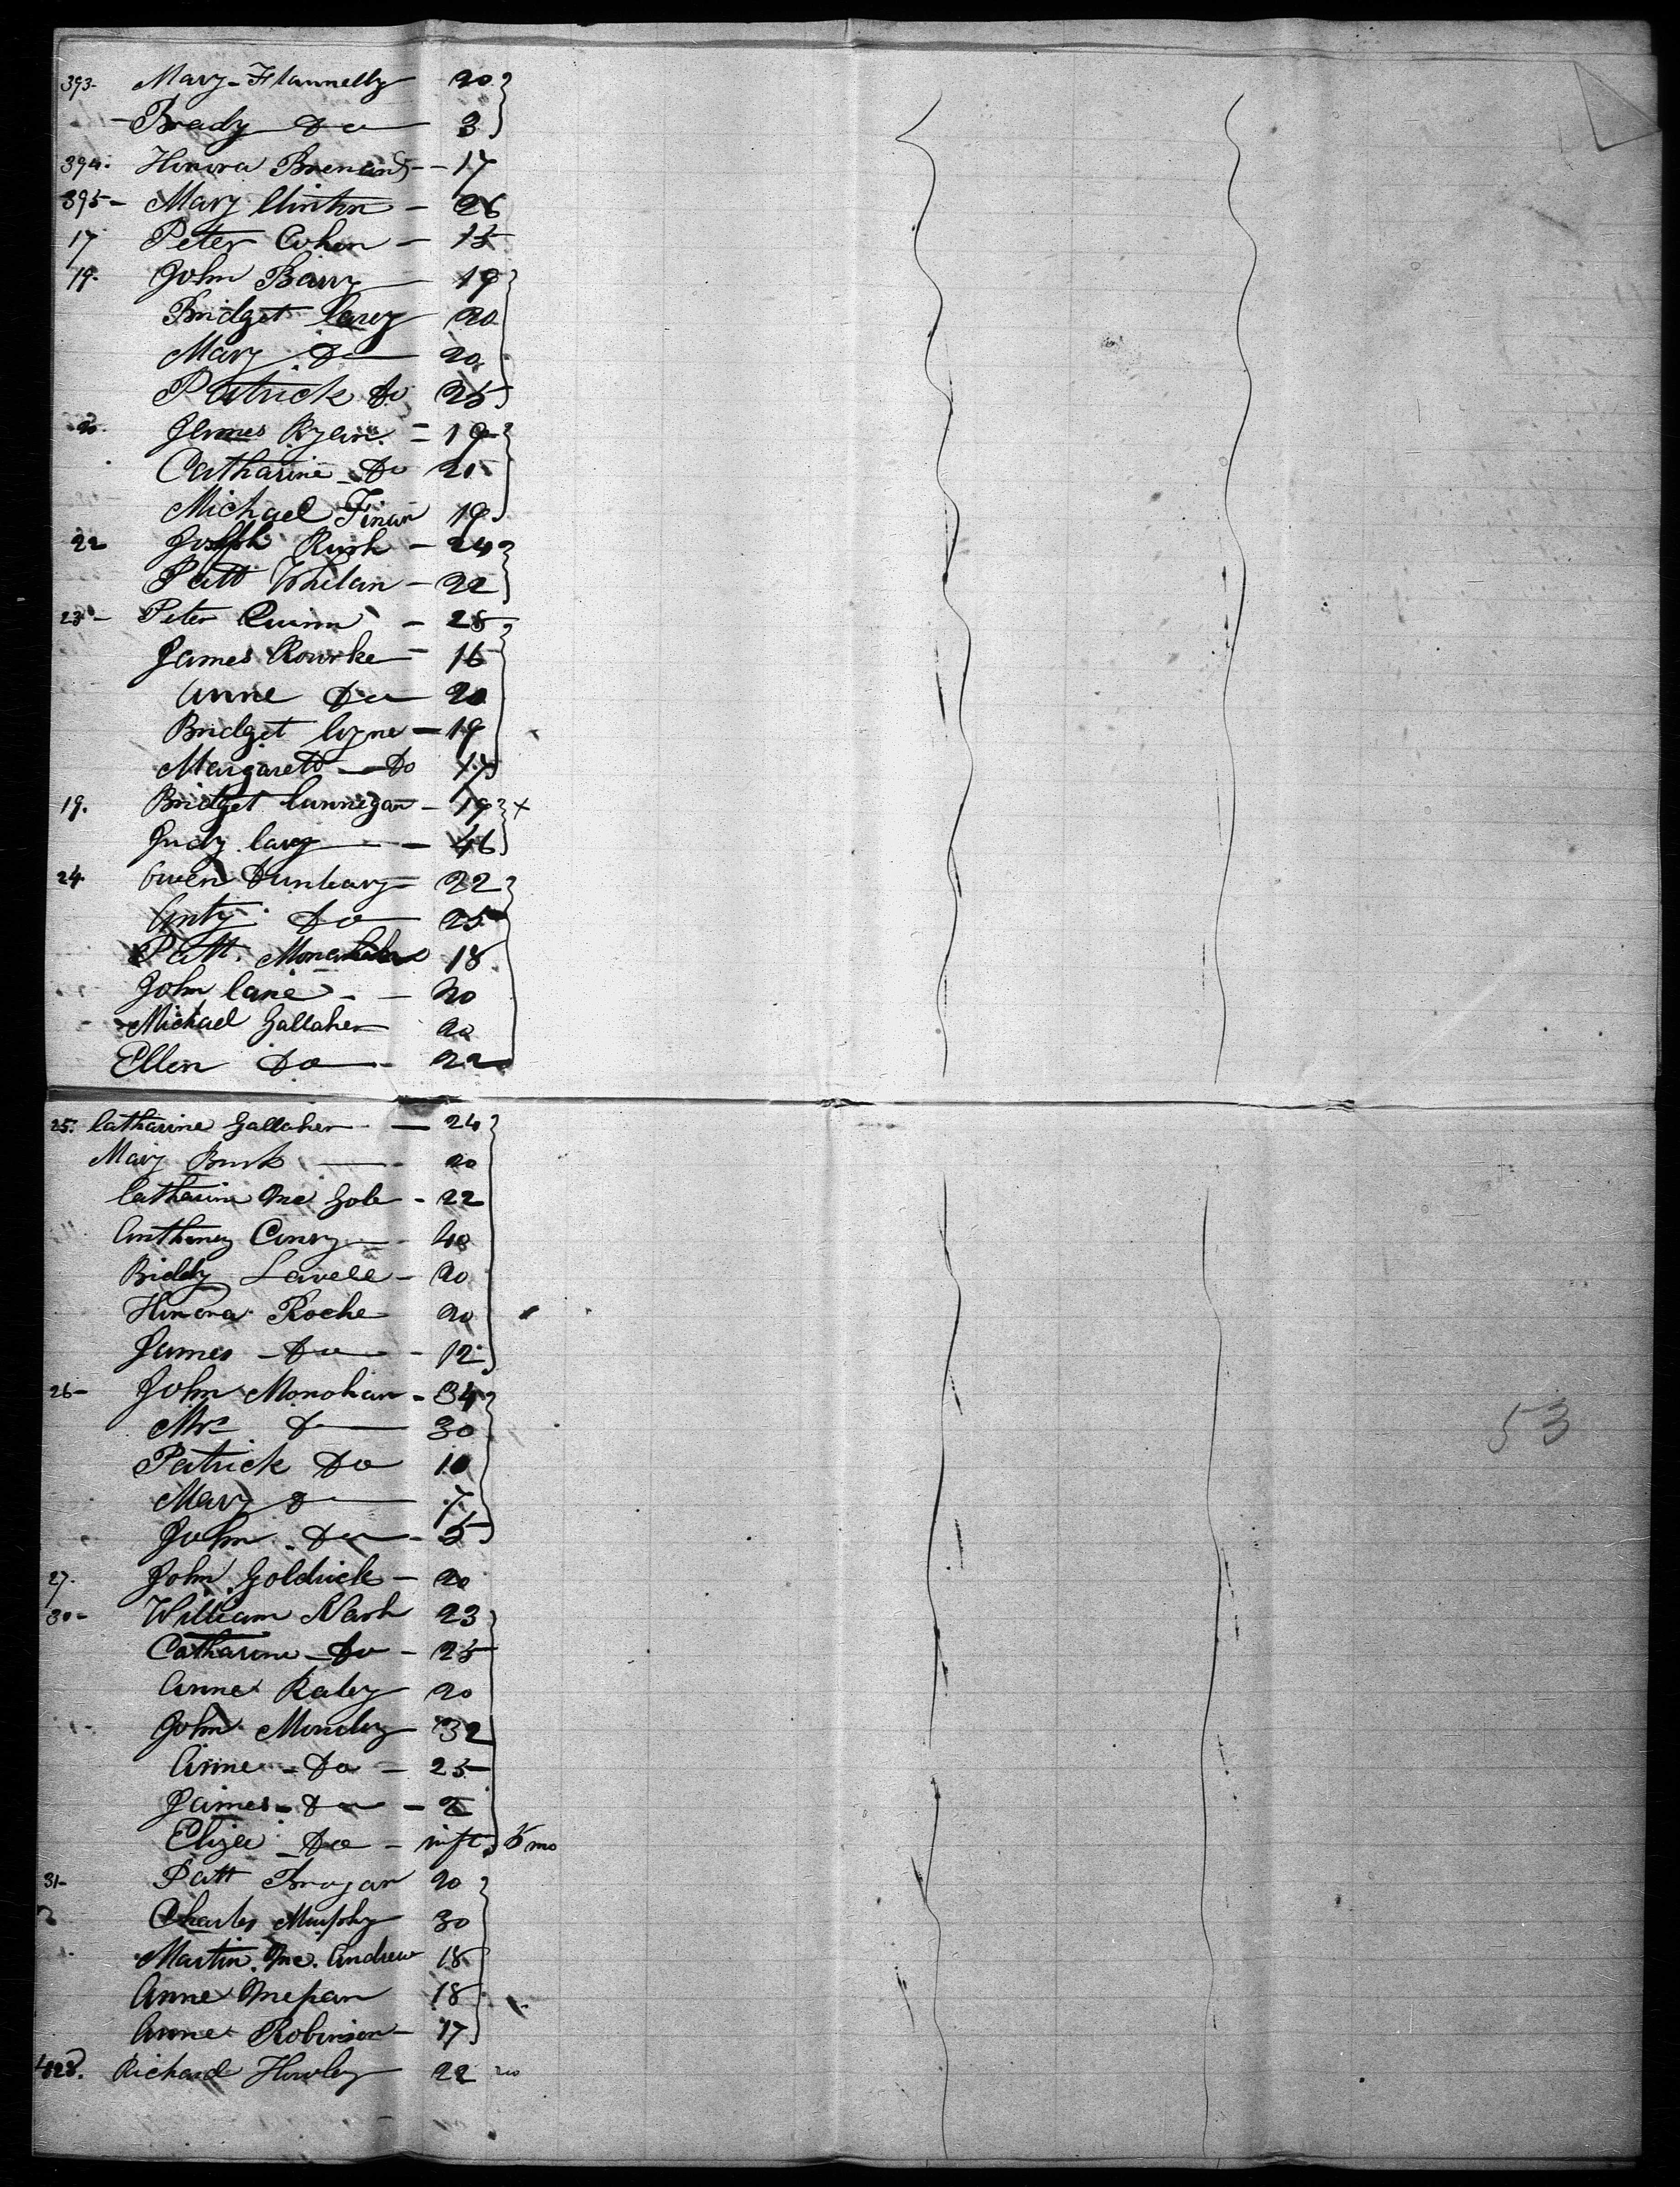 393. Mary Flannelly 20
Brady Do 3
394. Honora Brenan 17
395 Mary Clinton 26
17 Peter Cohen 15
19. John Barry 19
Bridget Carey 20
Mary Do 20
Patrick Do 25
20. James Ryan 19
Catharine Do 21
Michael Finan 19
22 Joseph Rush 24
Patt Whelan 22
23 Peter Quinn 28
James Rourke 16
Anne Do 20
Bridget Cyne 19
Margarett Do 17
19. Bridget Cunnegan 19 x
Judy Carey 46
24. Owen Dunleavy 22
Anty Do 25
Patt. 18
John Lane 20
Michael Gallaher 20
Ellen Do 22
25. Catharine Gallaher 24
Mary Burk 20
Catharine Mc Gole 22
Anthony Conry 40
Biddy Lavell 20
Honora Roche 20
James Do 12
26 John Monohan 34
Mrs Do 30
Patrick Do 10
Mary Do 7
John Do 5
53
27. John Goldrick 20
30 William Nash 23
Catharine Do 25
Anne Raley 20
John Munday 32
Anne Do 25
James Do 2
Eliza Do inft 5 mo
31 Patt Brogan 20
Charles Murphy 30
Martin Mc. Andrew 18
Anne 18
Anne Robinson 17
428. Richard Howley 22